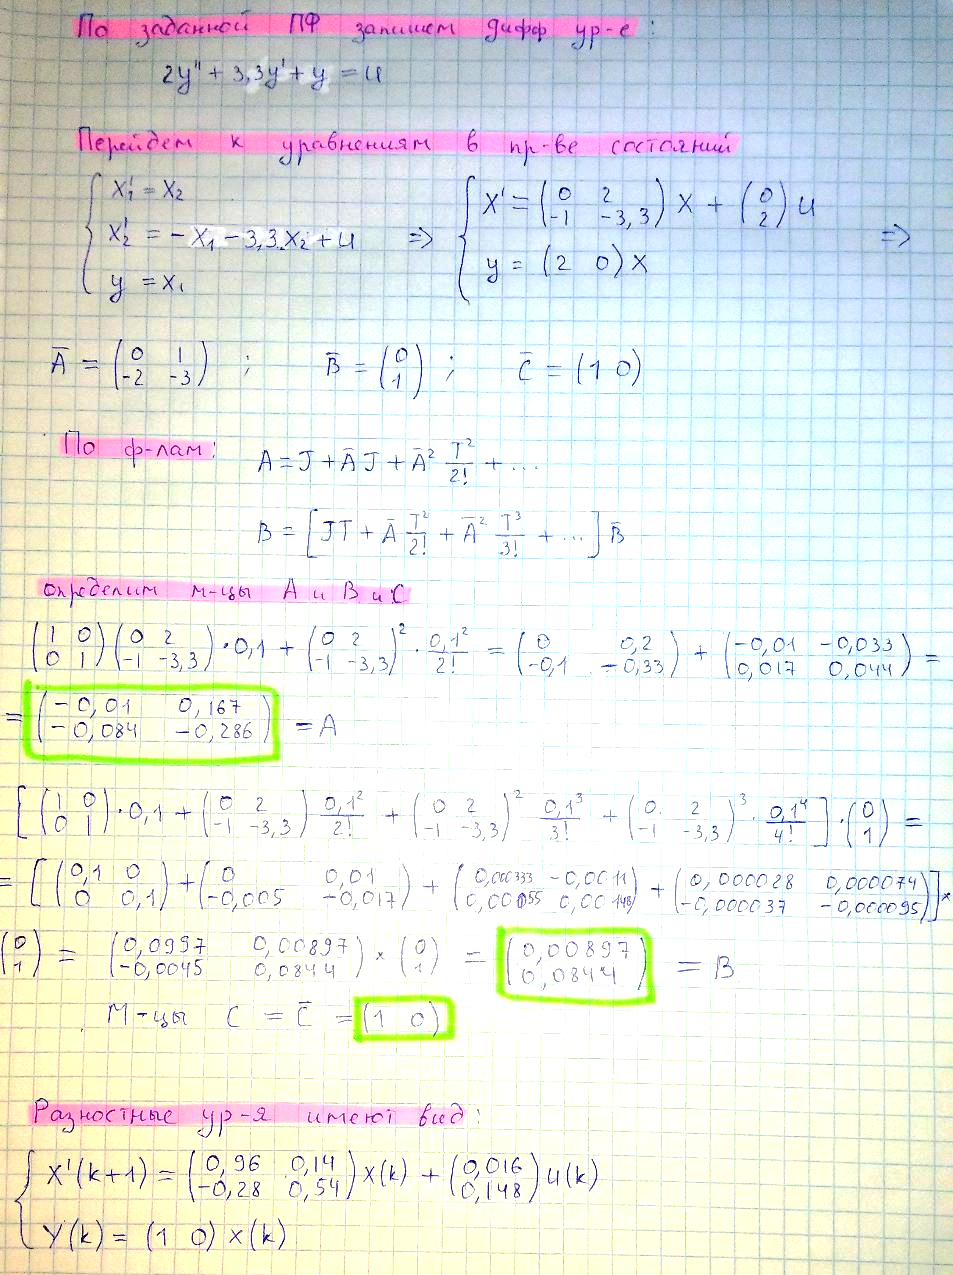 По заданной ПФ запишем дифф ур-е:
2y'' + 3,3y' + y = u
Перейдем к уравнениям в пр-ве состояний
{ x₁' = x₂
x₂' = -x₁ - 3,3x₂ + u => { x' = (0 2; -1 -3,3) x + (0; 2) u =>
y = x₁ y = (2 0) x
Ā = (0 1; -2 -3) ; B̄ = (0; 1) ; C̄ = (1 0)
По ф-лам: A = J + ĀJ + Ā² T²/2! + ...
B = [JT + Ā T²/2! + Ā² T³/3! + ...] B̄
определим м-цы A и B и C
(1 0; 0 1)(0 2; -1 -3,3)·0,1 + (0 2; -1 -3,3)² · 0,1²/2! = (0 0,2; -0,1 -0,33) + (-0,01 -0,033; 0,017 0,044) =
= (-0,01 0,167; -0,084 -0,286) = A
[(1 0; 0 1)·0,1 + (0 2; -1 -3,3) 0,1²/2! + (0 2; -1 -3,3)² 0,1³/3! + (0 2; -1 -3,3)³ · 0,1⁴/4!]·(0; 1) =
= [(0,1 0; 0 0,1) + (0 0,01; -0,005 -0,017) + (0,00333 -0,0011; 0,00055 0,00148) + (0,000028 0,000074; -0,000037 -0,000095)] ×
(0; 1) = (0,0997 0,00897; -0,0045 0,0844) × (0; 1) = (0,00897; 0,0844) = B
М-цы C = C̄ = (1 0)
Разностные ур-я имеют вид:
{ x'(k+1) = (0,96 0,14; -0,28 0,54) x(k) + (0,016; 0,148) u(k)
Y(k) = (1 0) x(k)